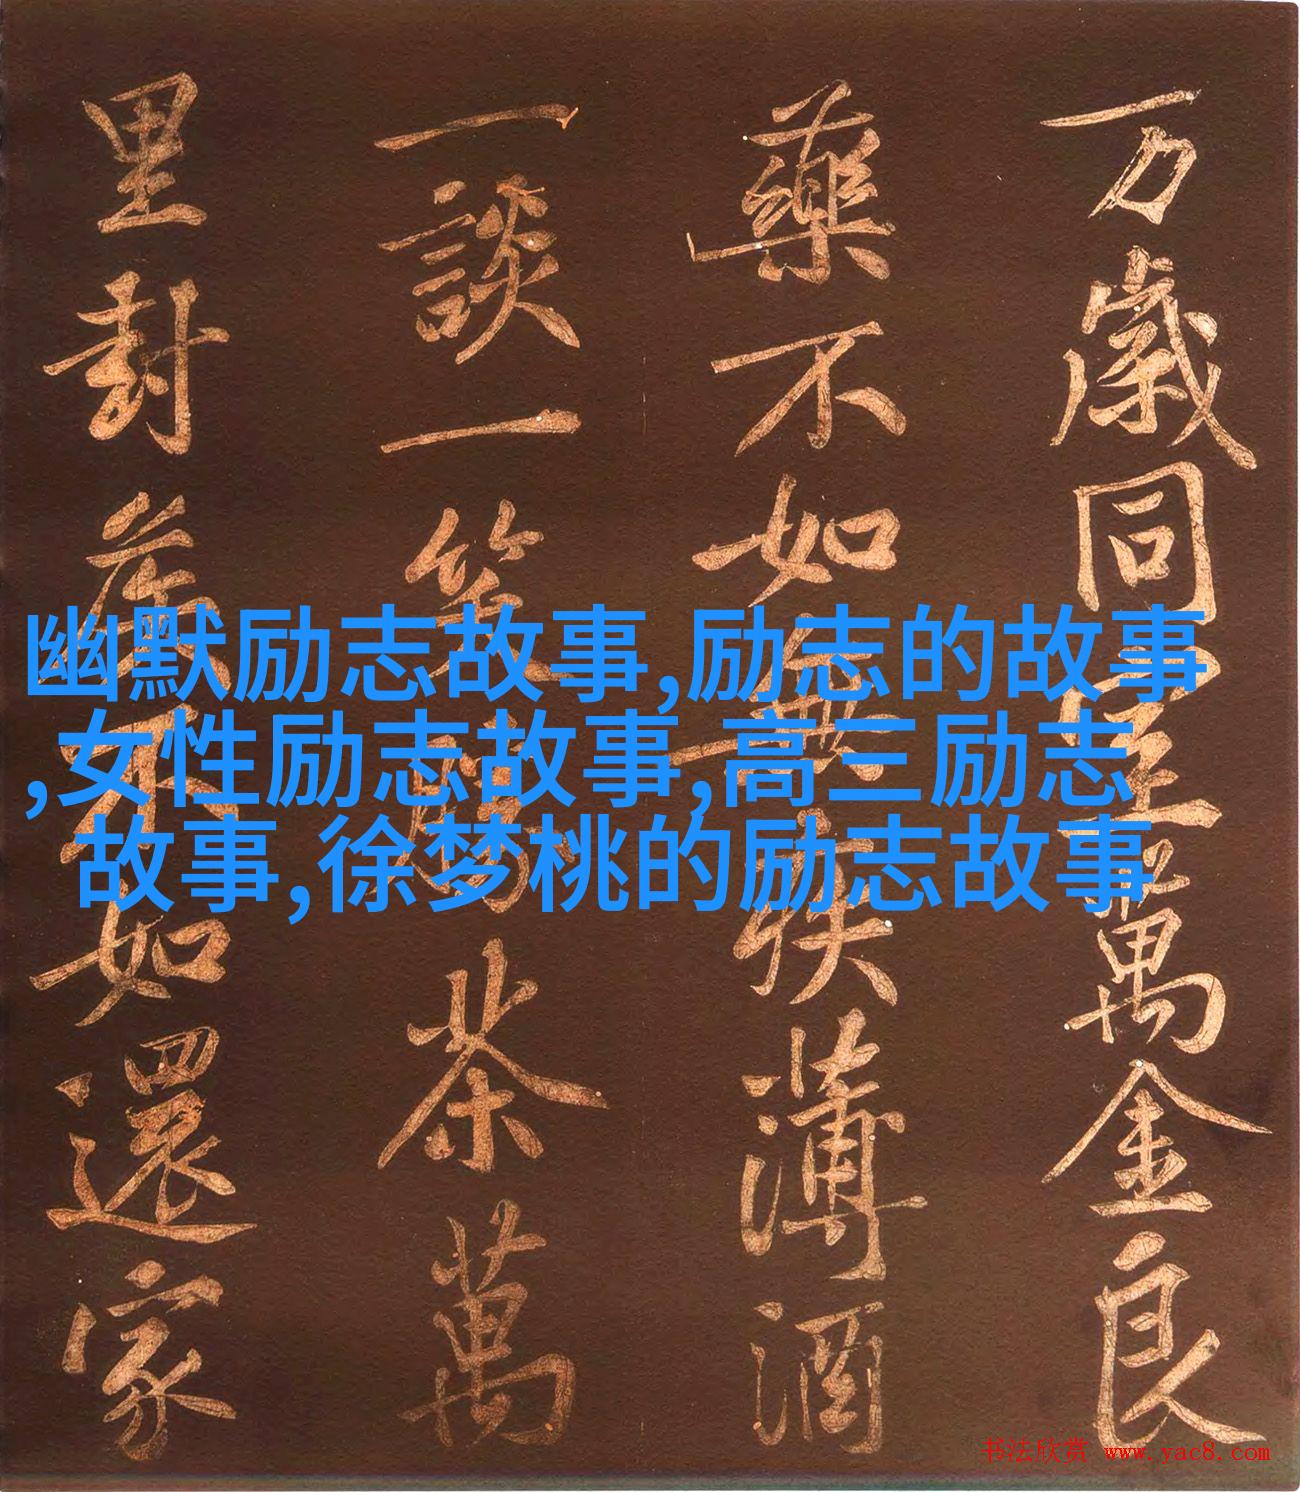 万歲同室萬金良
藥不如無疾薄酒
一談一笑勝茶萬
里封侯不如還家
幽默励志故事,励志的故事
,女性励志故事,高三励志
故事,徐梦桃的励志故事
书法欣赏 www.yac8.com